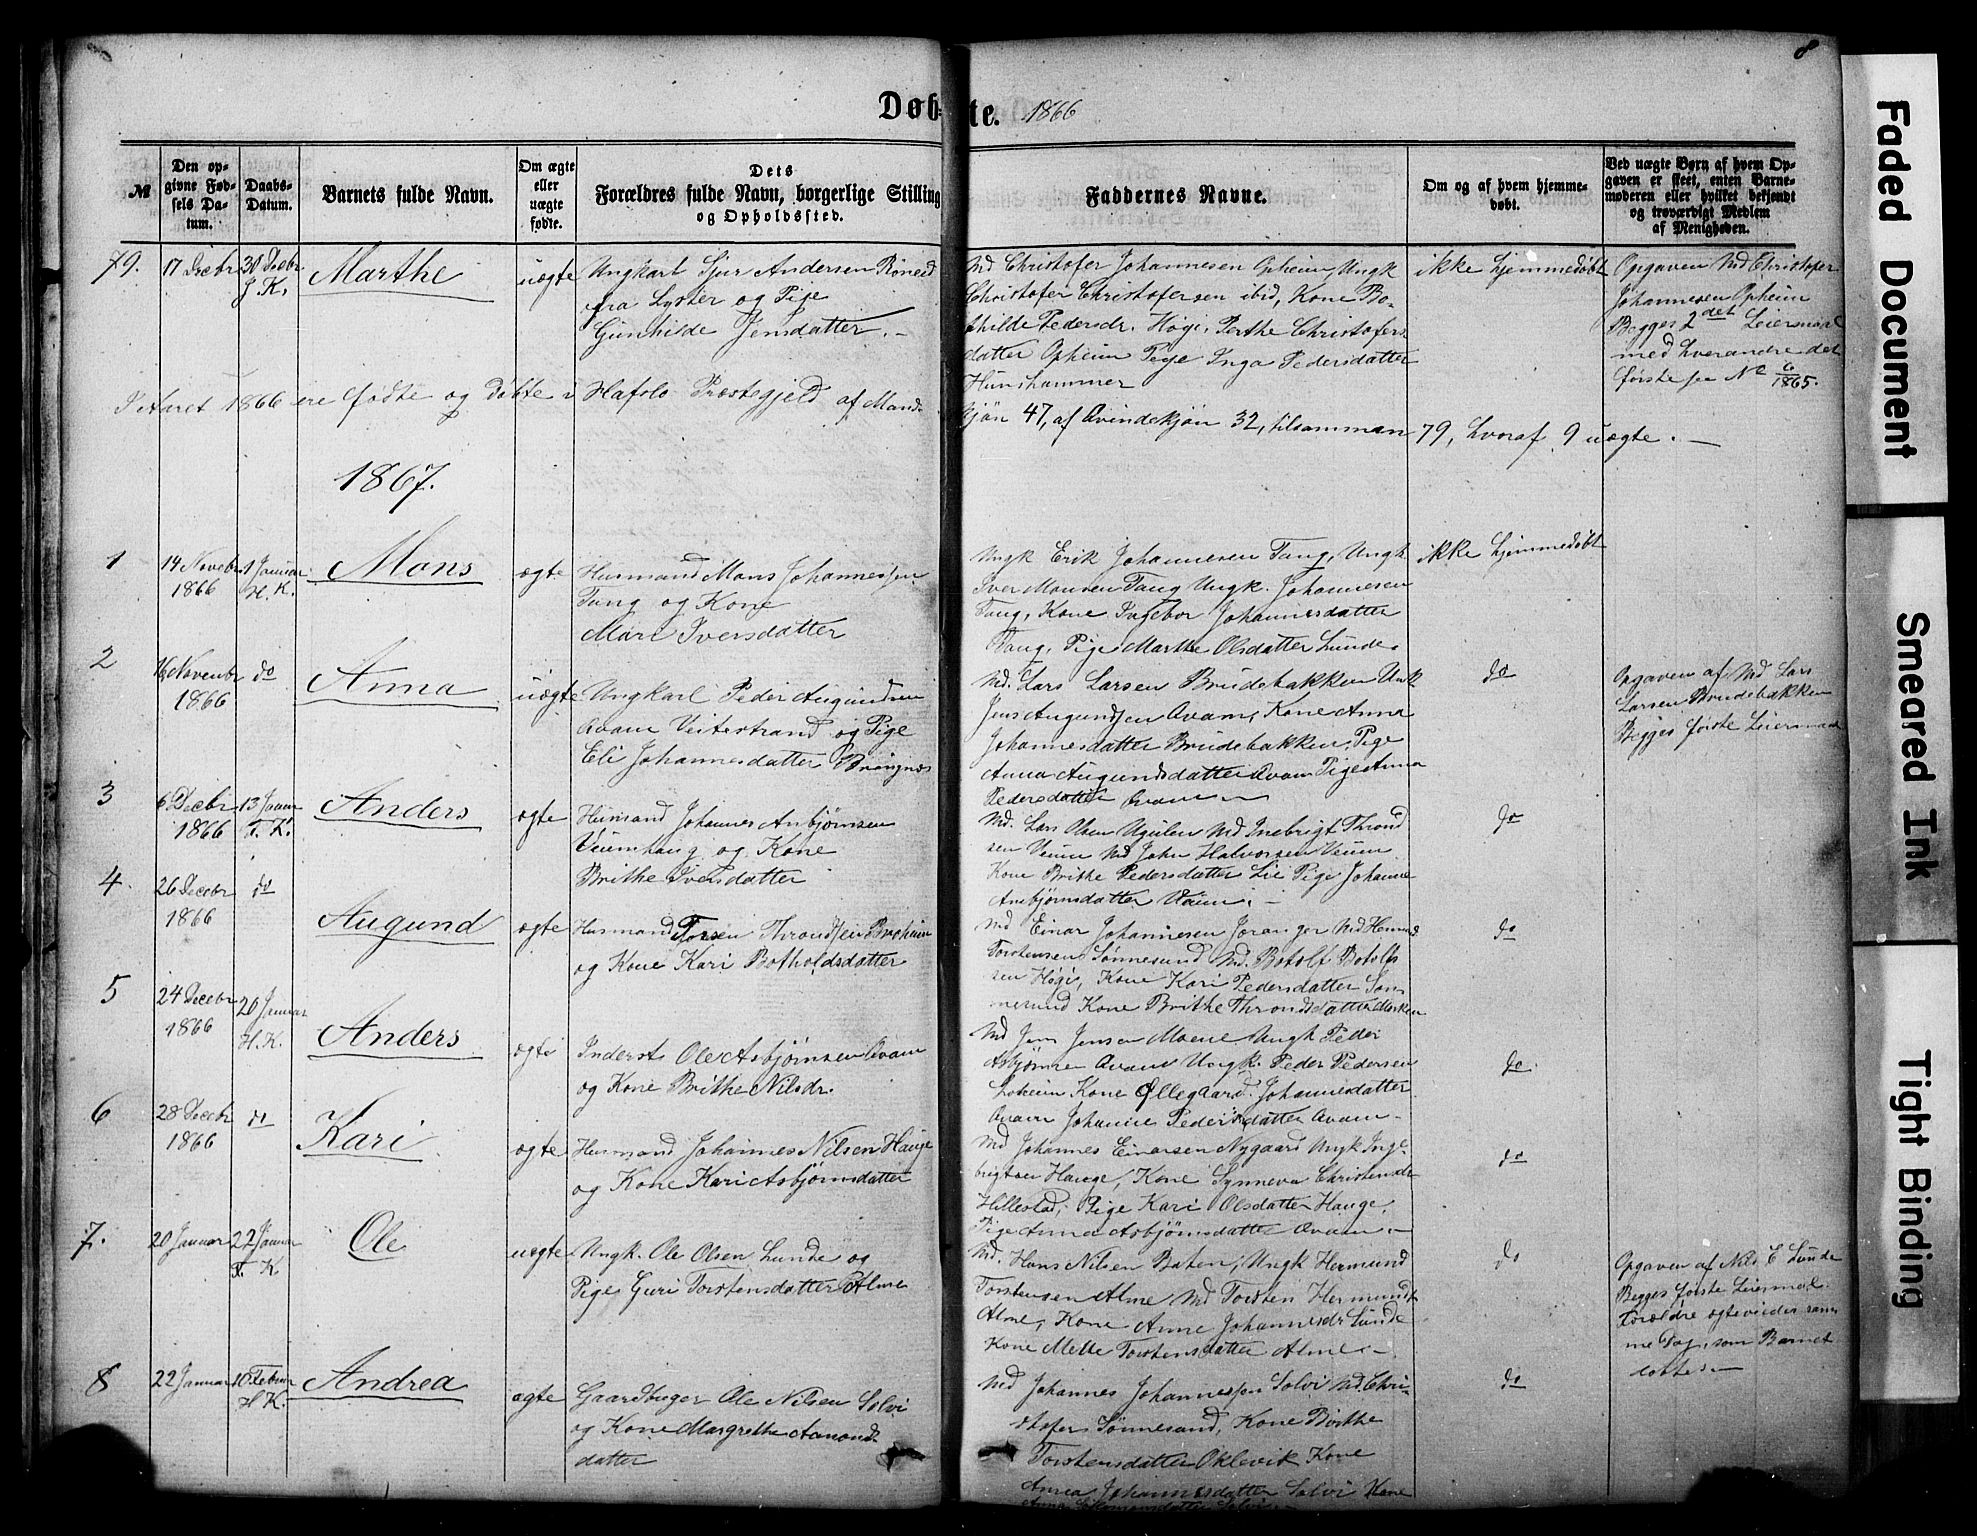 8
Døbte. 1866
№
Den opgivne Fødsels Datum.
Daabs-Datum.
Barnets fulde Navn.
Om ægte eller uægte fødte.
Dets Forældres fulde Navn, borgerlige Stilling og Opholdssted.
Faddernes Navne.
Om og af hvem hjemmedøbt.
Ved uægte Børn af hvem Opgaven er skeet, enten Barnemoderen eller hvilket bekjendt og troværdigt Medlem af Menigheden.
79. 17 Decbr 30 Decbr Marthe uægte
J K.
Ungkarl Sjur Andersen Röneid
fra Lyster og Pige
Gunhilde Jensdatter. —
Md Christofer Johannesen Opheim Ungk
Christofer Christofersen ibid, Kone Bo-
thilde Pedersdr. Högi, Perthe Christofers
datter Opheim Pige Inga Pedersdatter
Hunshammer
ikke hjemmedøbt
Opgaven Md Christofer
Johannesen Opheim
Begges 2det Leiermaal
med hverandre det
første se No 6/1865.
I Aaret 1866 ere fødte og døbte i Hafslo Præstegjeld af Mand-
kjön 47, af Qvindekjön 32, tilsammen 79, hvoraf 9 uægte. —
1867.
1 14 Novebr 1 Januar Mons ægte
1866 H. K.
Husmand Mons Johannessen
Tang og Kone
Mari Iversdatter
Ungk Erik Johannesen Tang, Ungk.
Iver Monsen Tang Ungk. Johannesen
Tang, Kone Ingebor Johannesdatter
Tang, Pige Marthe Olsdatter Lunde.
ikke hjemmedøbt
2 16 Novenbr do Anna uægte
1866
Ungkarl Peder Augundsen
Qvam Veitestrand og Pige
Eli Johannesdatter
Md. Lars Larsen Brudebakken Unk
Jens Augundsen Qvam, Kone Anna
Johannesdatter Brudebakken, Pige
Anna Augundsdatter Qvam Pige Anna
Pedersdatter Qvam —
do
Opgaven af Md Lars
Larsen Brudebakken
Begges første Leiermaal
3 6 Decbr 13 Januar Anders ægte
1866 T. K.
Husmand Johannes Anbjørnsen
Veiumhaug og Kone
Brithe Iversdatter
Md. Lars Olsen Ugulen Md Inebrigt Thrond
sen Veium Md John Halvorsen Veium
Kone Brithe Pedersdatter Lie Pige Johanne
Anbjørnsdatter Veium. —
do
4 26 Decebr do Augund ægte
1866
Husmand Throndsen
og Kone Kari Botholdsdatter
Md Einar Johannesen Joranger Md Hermund
Torstensen Sønnesand Md. Botolf Botolfs
sen Högi, Kone Kari Pedersdatter Søn
nesand Kone Brithe Throndsdatter Morken
do
5 24 Decebr 20 Januar Anders ægte
1866 H. K.
Inderst Ole Asbjørnsen Qvam
og Kone Brithe Nilsdr.
Md Jens Jensen Moene Ungk Peder
Asbjørnsen Qvam Ungk. Peder Pedersen
Loheim Kone Øllegaard Johannesdatter
Qvam Johanne Pedersdatter Qvam —
do.
6 28 Decebr do Kari ægte
1866
Husmand Johannes Nilsen Hauge
og Kone Kari Asbjørnsdatter
Md Johannes Einarsen Nygaard Ungk Inge-
brigtsen Hauge, Kone Synneva Christensdr
Hillestad, Pige Kari Olsdatter Hauge,
Pige Anna Asbjørnsdatter Qvam. —
do
7. 20 Januar 22 Januar Ole uægte
T. K
Ungk. Ole Olsen Lunde og
Pige Guri Torstensdatter Alme
Md. Hans Nilsen Baten, Ungk Hermund
Torstensen Alme Md Torsten Hermunds
Alme, Kone Anne Johannesdr Lunde
Kone Mette Torstensdatter Alme. —
do
Opgaven af Nils E Lunde
Begges første Leiermaal.
Forældre ægteviedes sam
me Dag, som Barnet
døbtes. —
8 22 Januar 10 Februar Andrea ægte
H K.
Gaardbuger Ole Nilsen Solvi
og Kone Margrethe Aamonds-
datter
Md Johannes Johannessen Solvi Md. Chri-
stofer Sønnesand, Kone Birthe
Torstensdatter Oklevik Kone
Anna Johannesdatter Solvi Kone
do
Faded Document
Smeared Ink
Tight Binding